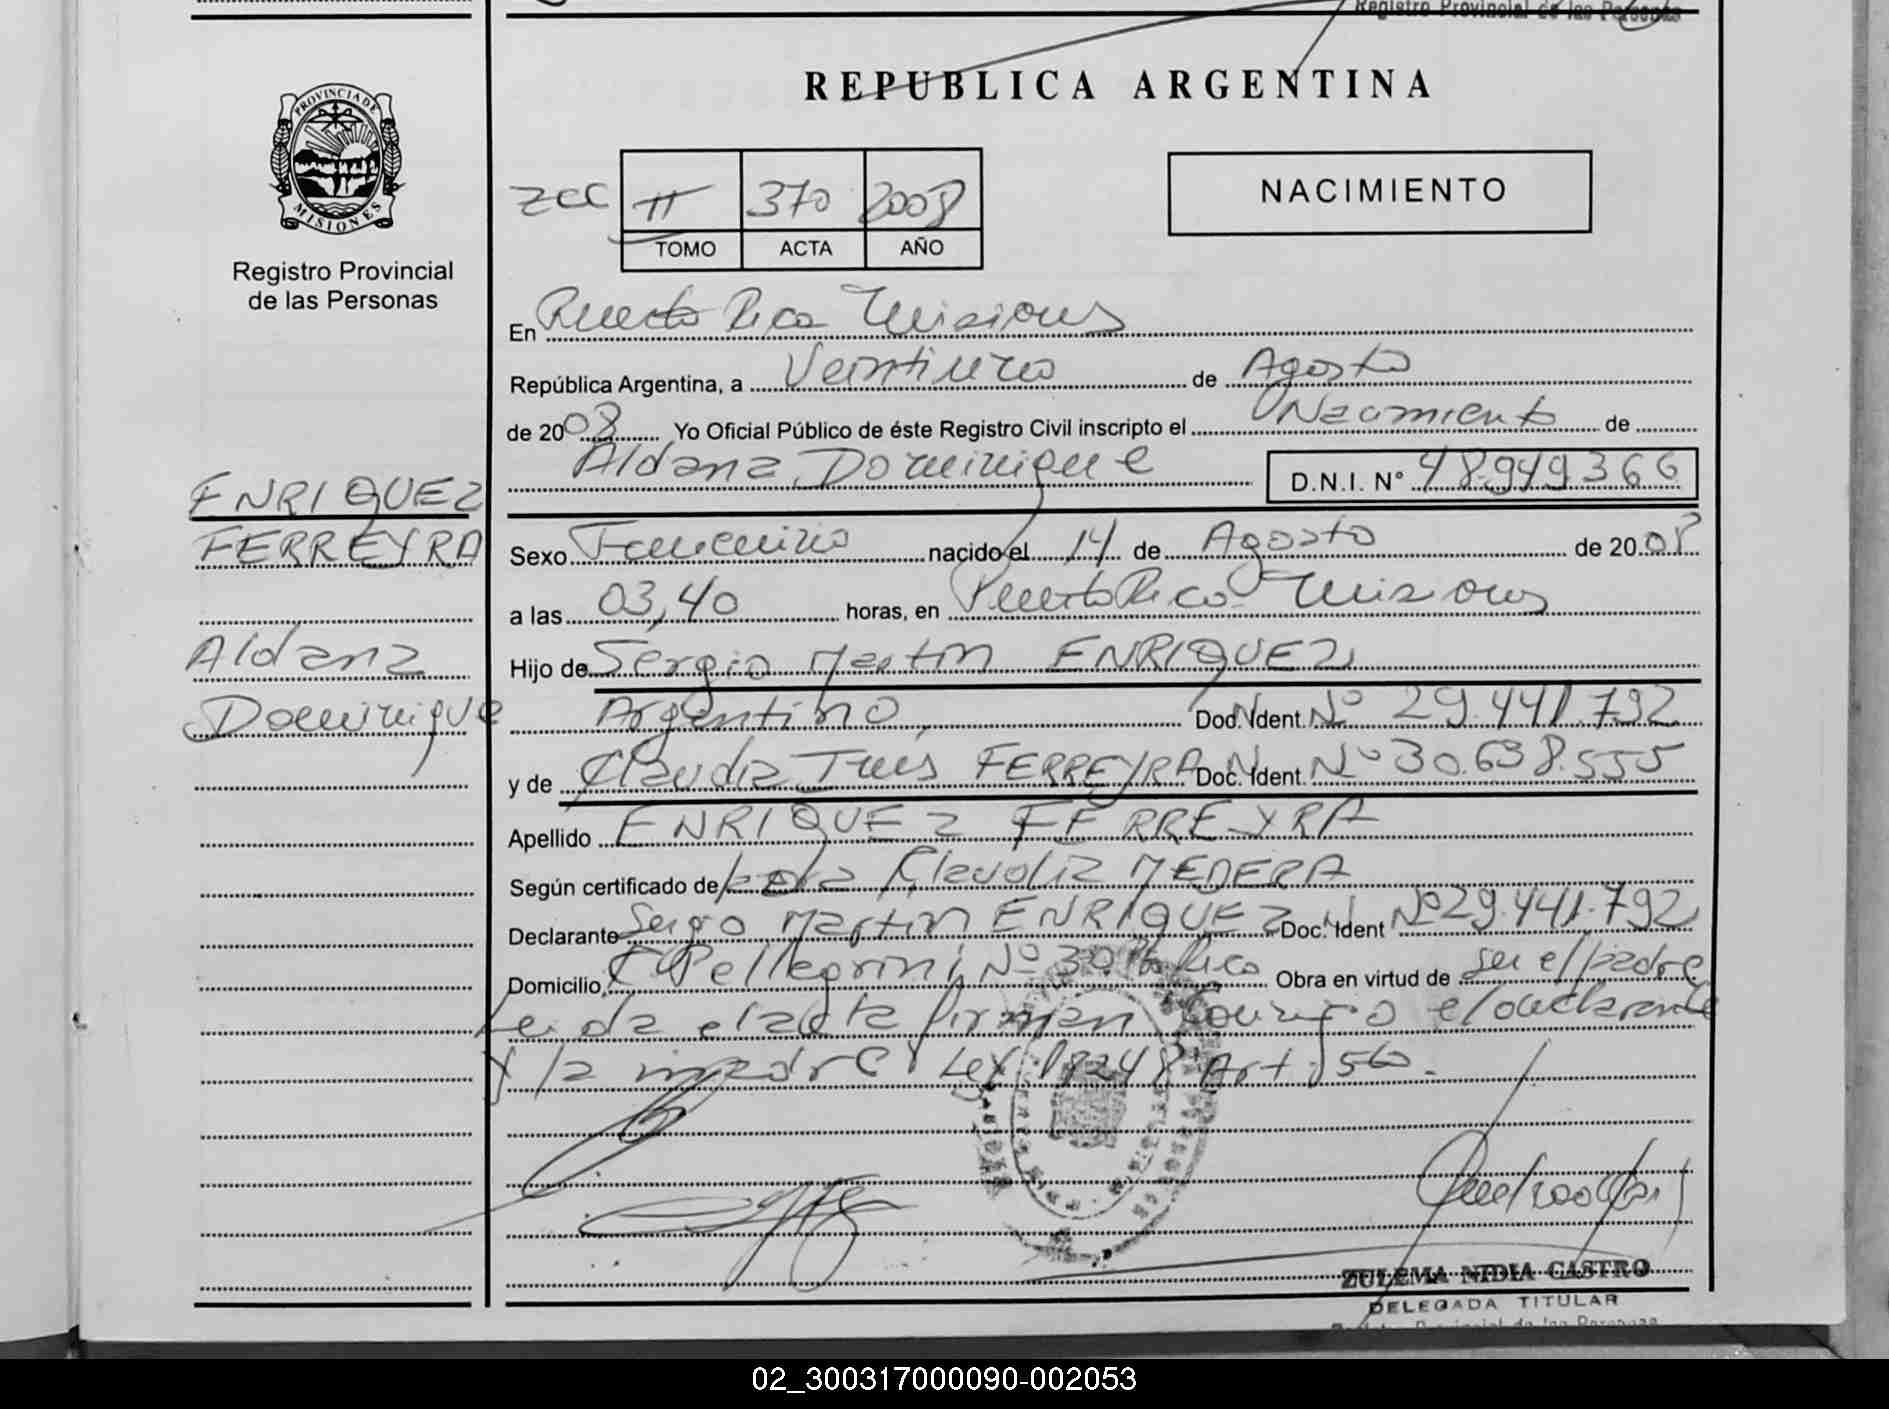 Registro Provincial de las Personas
REPUBLICA ARGENTINA
PROVINCIA DE
MISIONES
Registro Provincial
de las Personas
II 370 2008
TOMO ACTA AÑO
NACIMIENTO
En Puerto Rico Misiones
República Argentina, a Veintiuno de Agosto
de 2008 Yo Oficial Público de éste Registro Civil inscripto el Nacimiento de
Aldana Dominique D.N.I. N° 48.949.366
ENRIQUEZ
FERREYRA
Aldana
Dominique
Sexo Femenino nacido el 14 de Agosto de 2008
a las 03,40 horas, en Puerto Rico Misiones
Hijo de Sergio Martin ENRIQUEZ
Argentino, Doc. Ident. N° 29.441.792
y de Claudia Inés FERREYRA Doc. Ident. N° 30.638.555
Apellido ENRIQUEZ FERREYRA
Según certificado de Claudia MEDERA
Declarante Sergio Martin ENRIQUEZ Doc. Ident N° 29.441.792
Domicilio C Pellegrini N° 30 Pto Rico Obra en virtud de ser el padre
Leida el acta firman conmigo el declarante
y la madre Ley 18248 Art 5to.
ZULEMA NIDIA CASTRO
DELEGADA TITULAR
Registro Provincial de las Personas
02_300317000090-002053